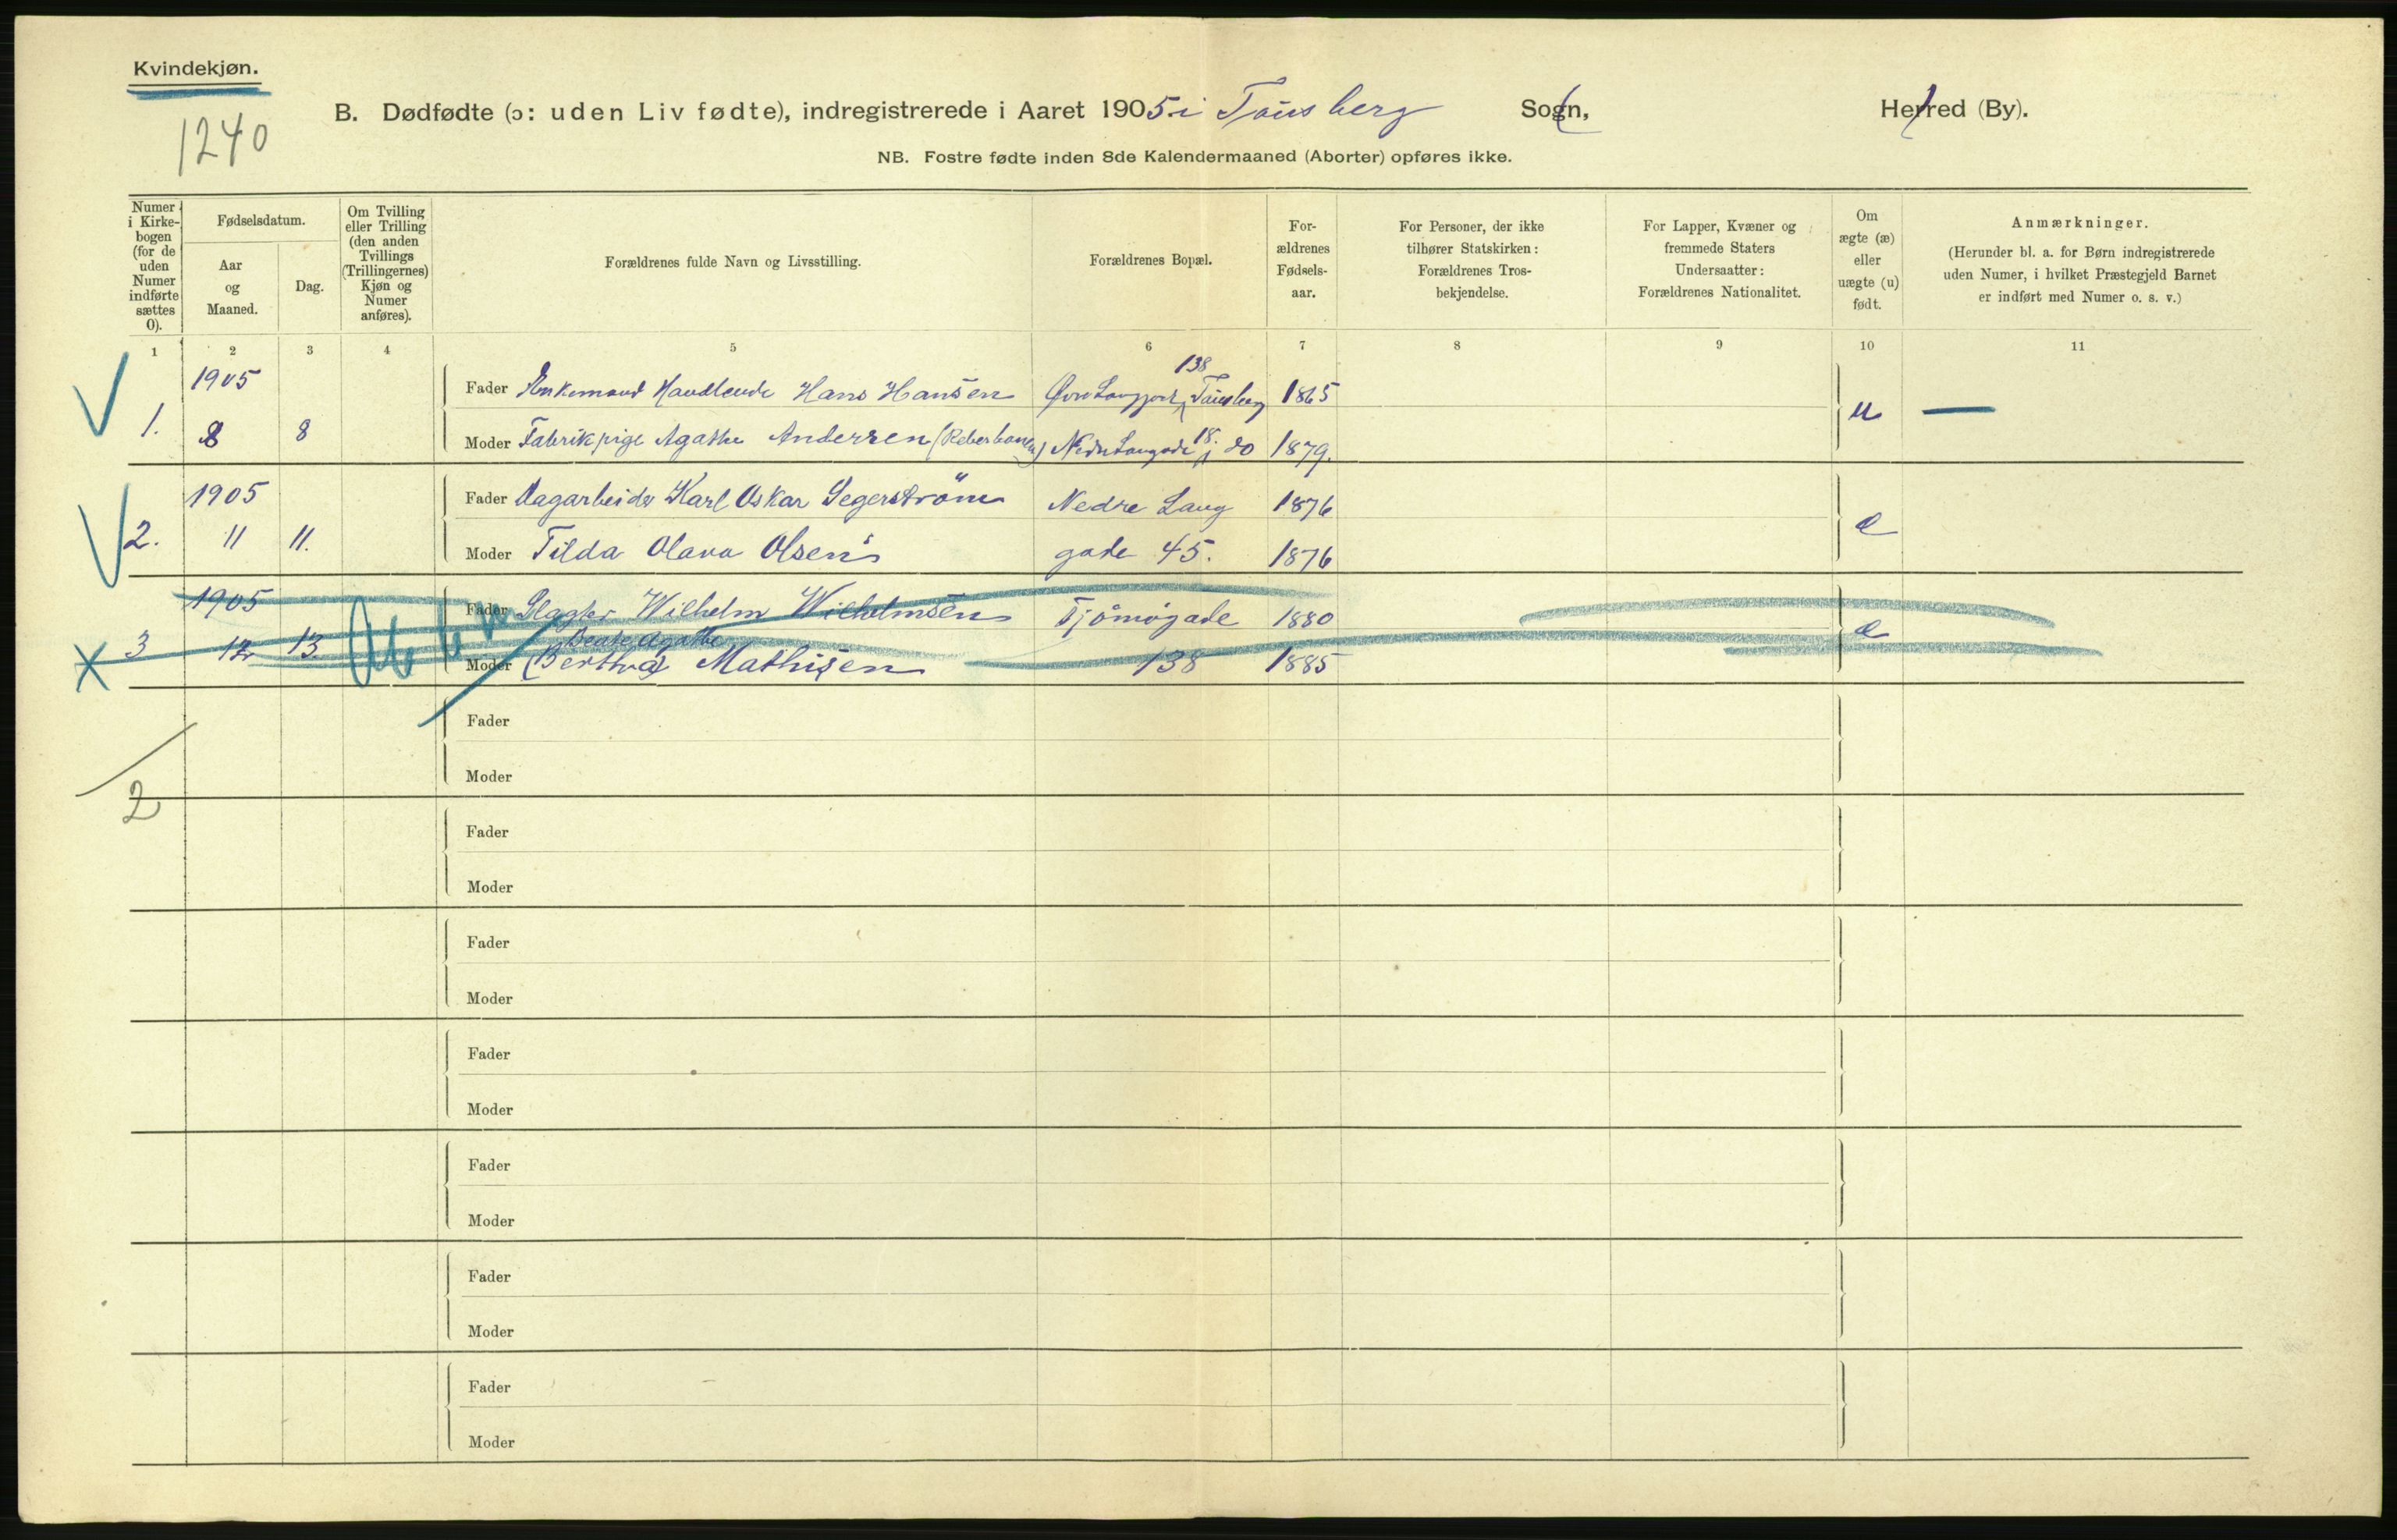 Kvindekjøn.
1240
B. Dødfødte (ɔ: uden Liv fødte), indregistrerede i Aaret 1905 i Tönsberg Sogn, Herred (By).
NB. Fostre fødte inden 8de Kalendermaaned (Aborter) opføres ikke.
Numer i Kirkebogen (for de uden Numer indførte sættes 0).
Fødselsdatum.
Aar og Maaned.
Dag.
Om Tvilling eller Trilling (den anden Tvillings (Trillingernes) Kjøn og Numer anføres).
Forældrenes fulde Navn og Livsstilling.
Forældrenes Bopæl.
Forældrenes Fødselsaar.
For Personer, der ikke tilhører Statskirken: Forældrenes Trosbekjendelse.
For Lapper, Kvæner og fremmede Staters Undersaatter: Forældrenes Nationalitet.
Om ægte (æ) eller uægte (u) født.
Anmærkninger.
(Herunder bl. a. for Børn indregistrerede uden Numer, i hvilket Præstegjeld Barnet er indført med Numer o. s. v.)
1 2 3 4 5 6 7 8 9 10 11
1905 Fader Enkemand Handlende Hans Hansen 138 Tönsberg 1865
1. 8 8 Moder Fabrikpige Agathe Andersen (Reberbanen) Nedre Langgade 18. do 1879. u —
1905 Fader Dagarbeider Karl Oskar Segerström Nedre Lang 1876
2. 11 11. Moder Tilda Olava Olsen gade 45. 1876 æ
1905 Fader Slagter Wilhelm Wilhelmsen Tjömögade 1880
3 12 13. Moder (Bertha) Beate Agathe Mathisen 138 1885 æ
Fader
Moder
2
Fader
Moder
Fader
Moder
Fader
Moder
Fader
Moder
Fader
Moder
Fader
Moder